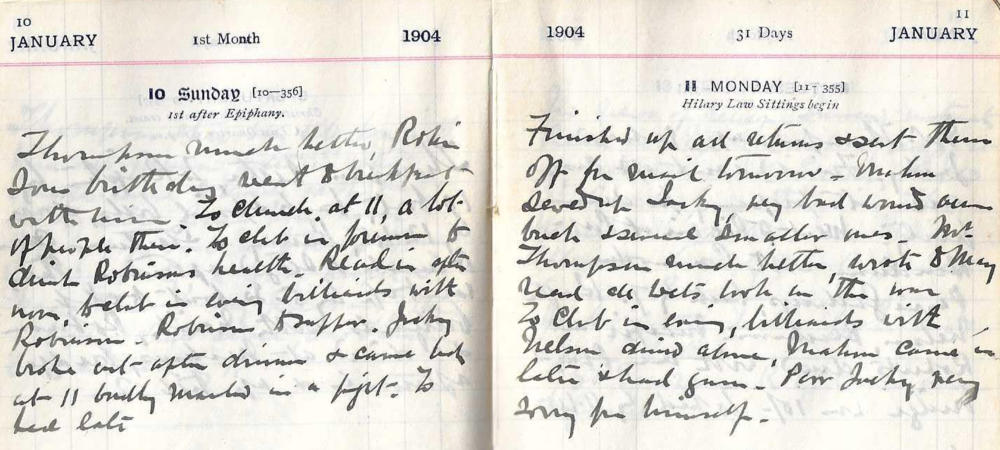 10
JANUARY 1st Month 1904
10 Sunday [10—356]
1st after Epiphany.
Thompson much better, Robin
sons birthday went to breakfast
with him. To church at 11, a lot
of people there. To club in forenoon to
drink Robinsons health. Read in after
noon, to club in evening billiards with
Robinson. Robinson to supper. Jacky
broke out after dinner & came back
at 11 badly mauled in a fight. To
bed late
11
1904 31 Days JANUARY
11 MONDAY [11—355]
Hilary Law Sittings begin
Finished up all returns & sent them
off for mail tomorrow – Mahon
sewed up Jacky, very bad wound
back & several smaller ones – Mrs
Thompson much better, wrote to May
read book on the war
To Club in evening, billiards with
Nelson dined alone, Mahon came in
later & had game. Poor Jacky very
sorry for himself.